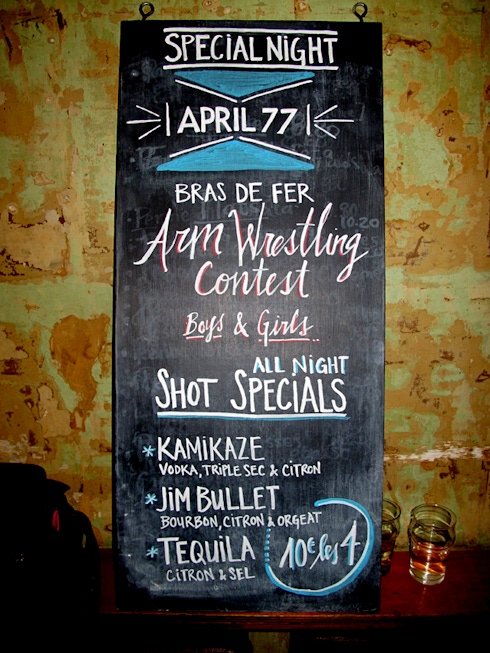 SPECIAL NIGHT
APRIL 77
BRAS DE FER
Arm Wrestling
Contest
Boys & Girls
ALL NIGHT
SHOT SPECIALS
*KAMiKAZE
VODKA, TRIPLE SEC & CITRON
*JiM BULLET
BOURBON, CITRON & ORGEAT
*TEQUiLA
CiTRON & SEL
10€ les 4